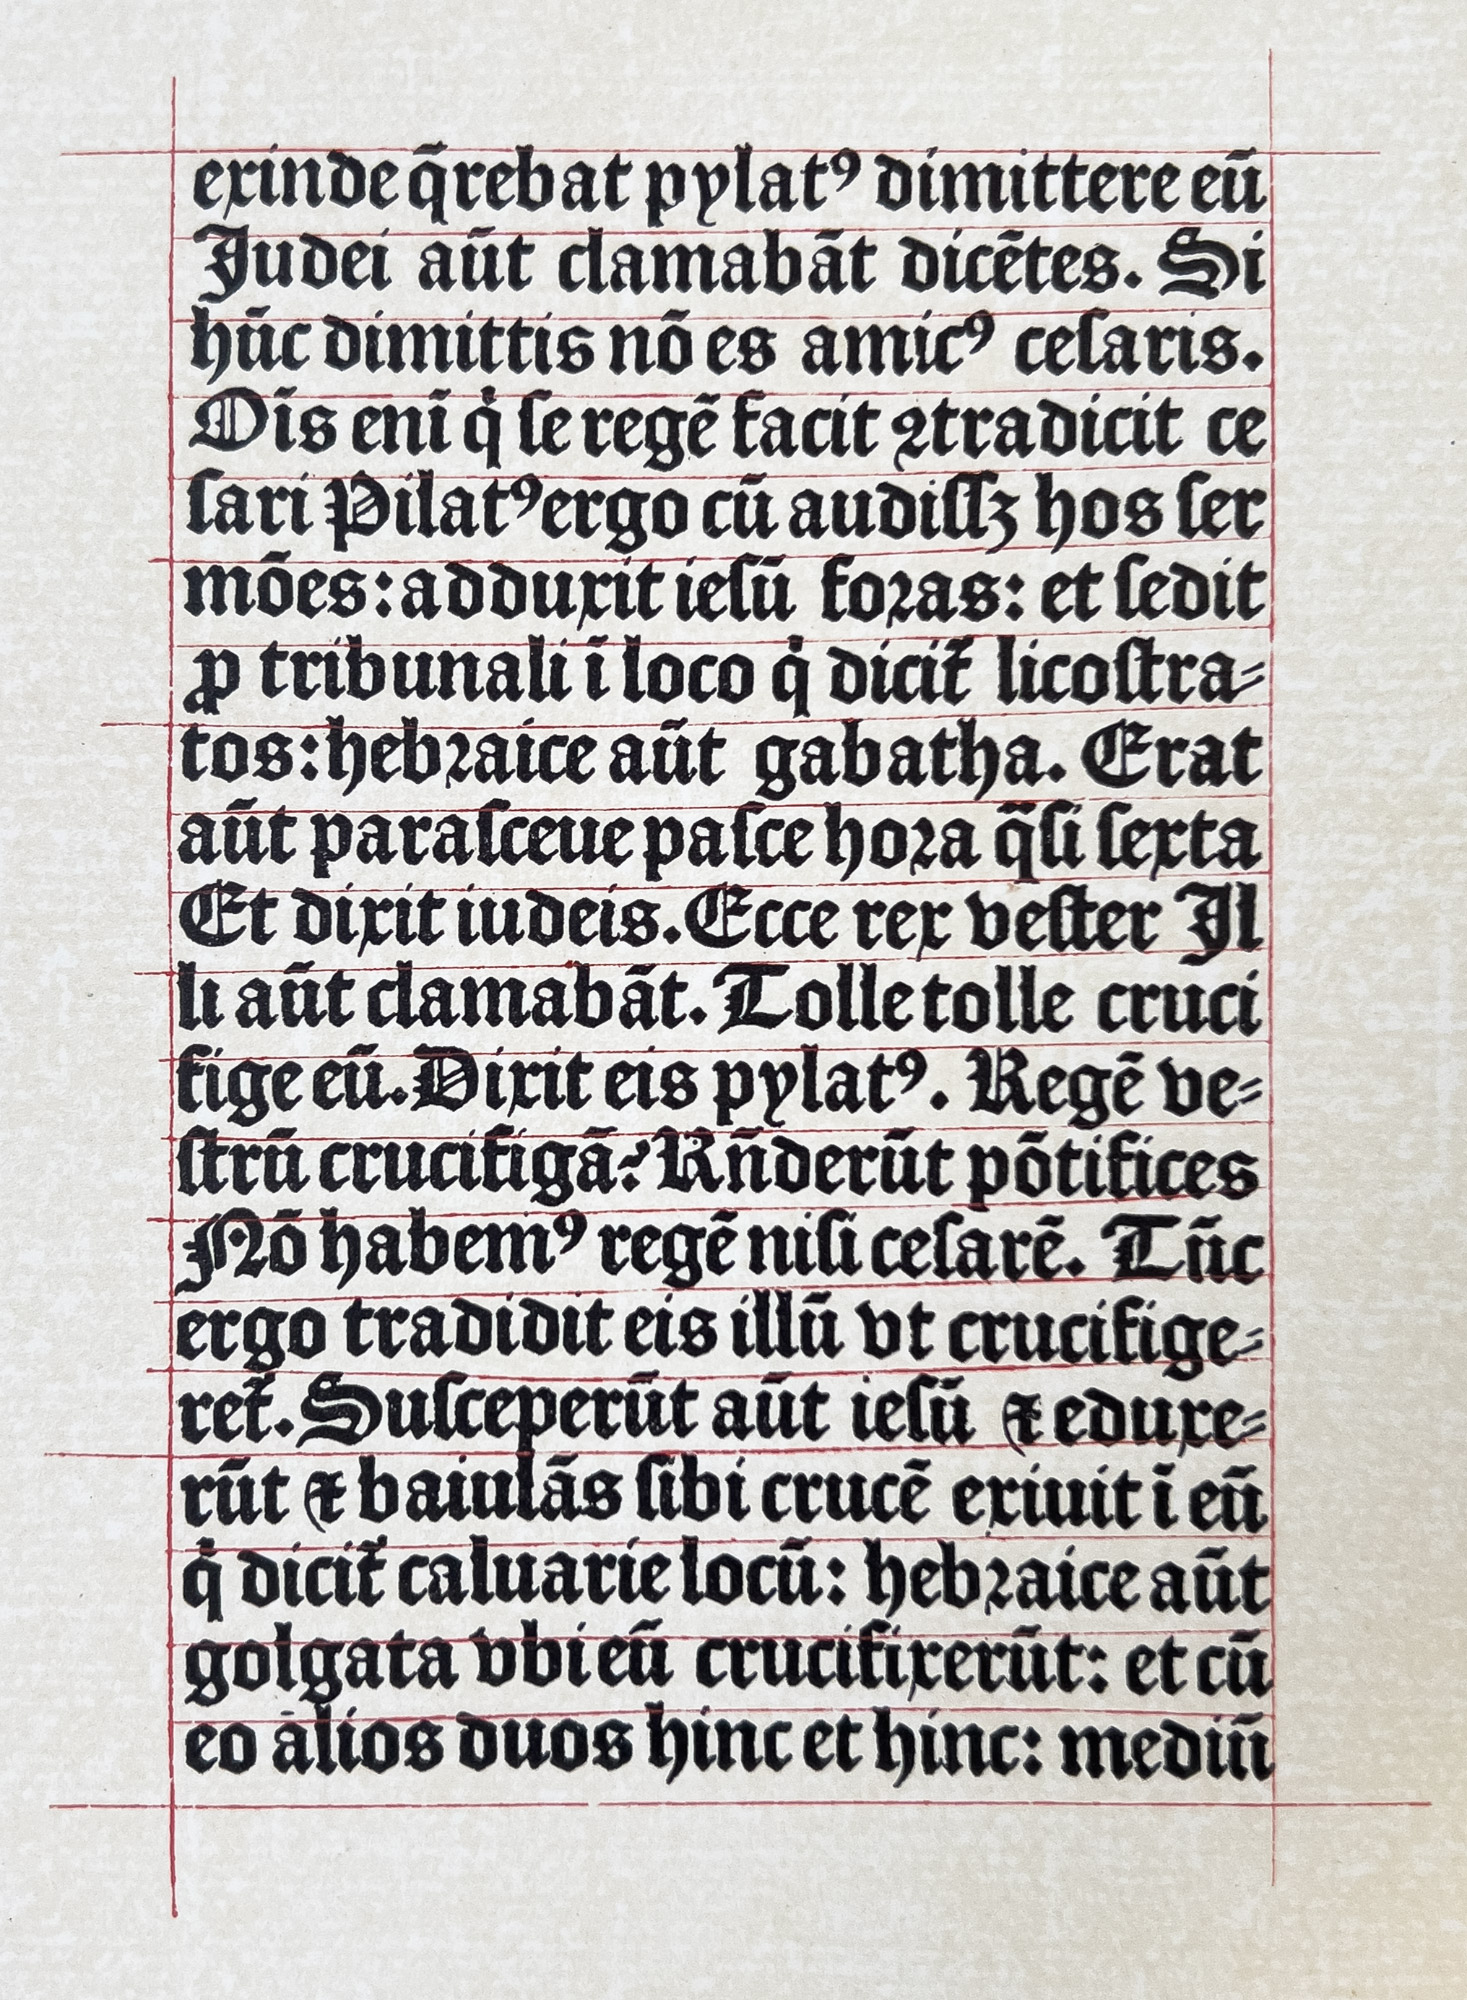 exinde q̄rebat pylatꝰ dimittere eū
Judei aūt clamabāt dicētes. Si
hūc dimittis nō es amicꝰ ceſaris.
Oīs enī qͥ ſe regē facit ꝯtradicit ce
ſari Pilatꝰ ergo cū audiſſꝫ hos ſer
mōes: adduxit ieſū foꝛas: et ſedit
ꝓ tribunali ī loco qͥ dicit᷑ licoſtra⸗
tos: hebꝛaice aūt gabatha. Erat
aūt paraſceue paſce hoꝛa q̄ſi ſexta
Et dixit iudeis. Ecce rex veſter Il
li aūt clamabāt. Tolle tolle cruci
fige eū. Dixit eis pylatꝰ. Regē ve⸗
ſtrū crucifigā? Rn̄derūt pōtifices
Nō habemꝰ regē niſi ceſarē. Tūc
ergo tradidit eis illū vt crucifige⸗
ret᷑. Suſceperūt aūt ieſū ⁊ eduxe⸗
rūt ⁊ baiulās ſibi crucē exiuit ī eū
qͥ dicit᷑ caluarie locū: hebꝛaice aūt
golgata vbi eū crucifixerūt: et cū
eo alios duos hinc et hinc: mediū